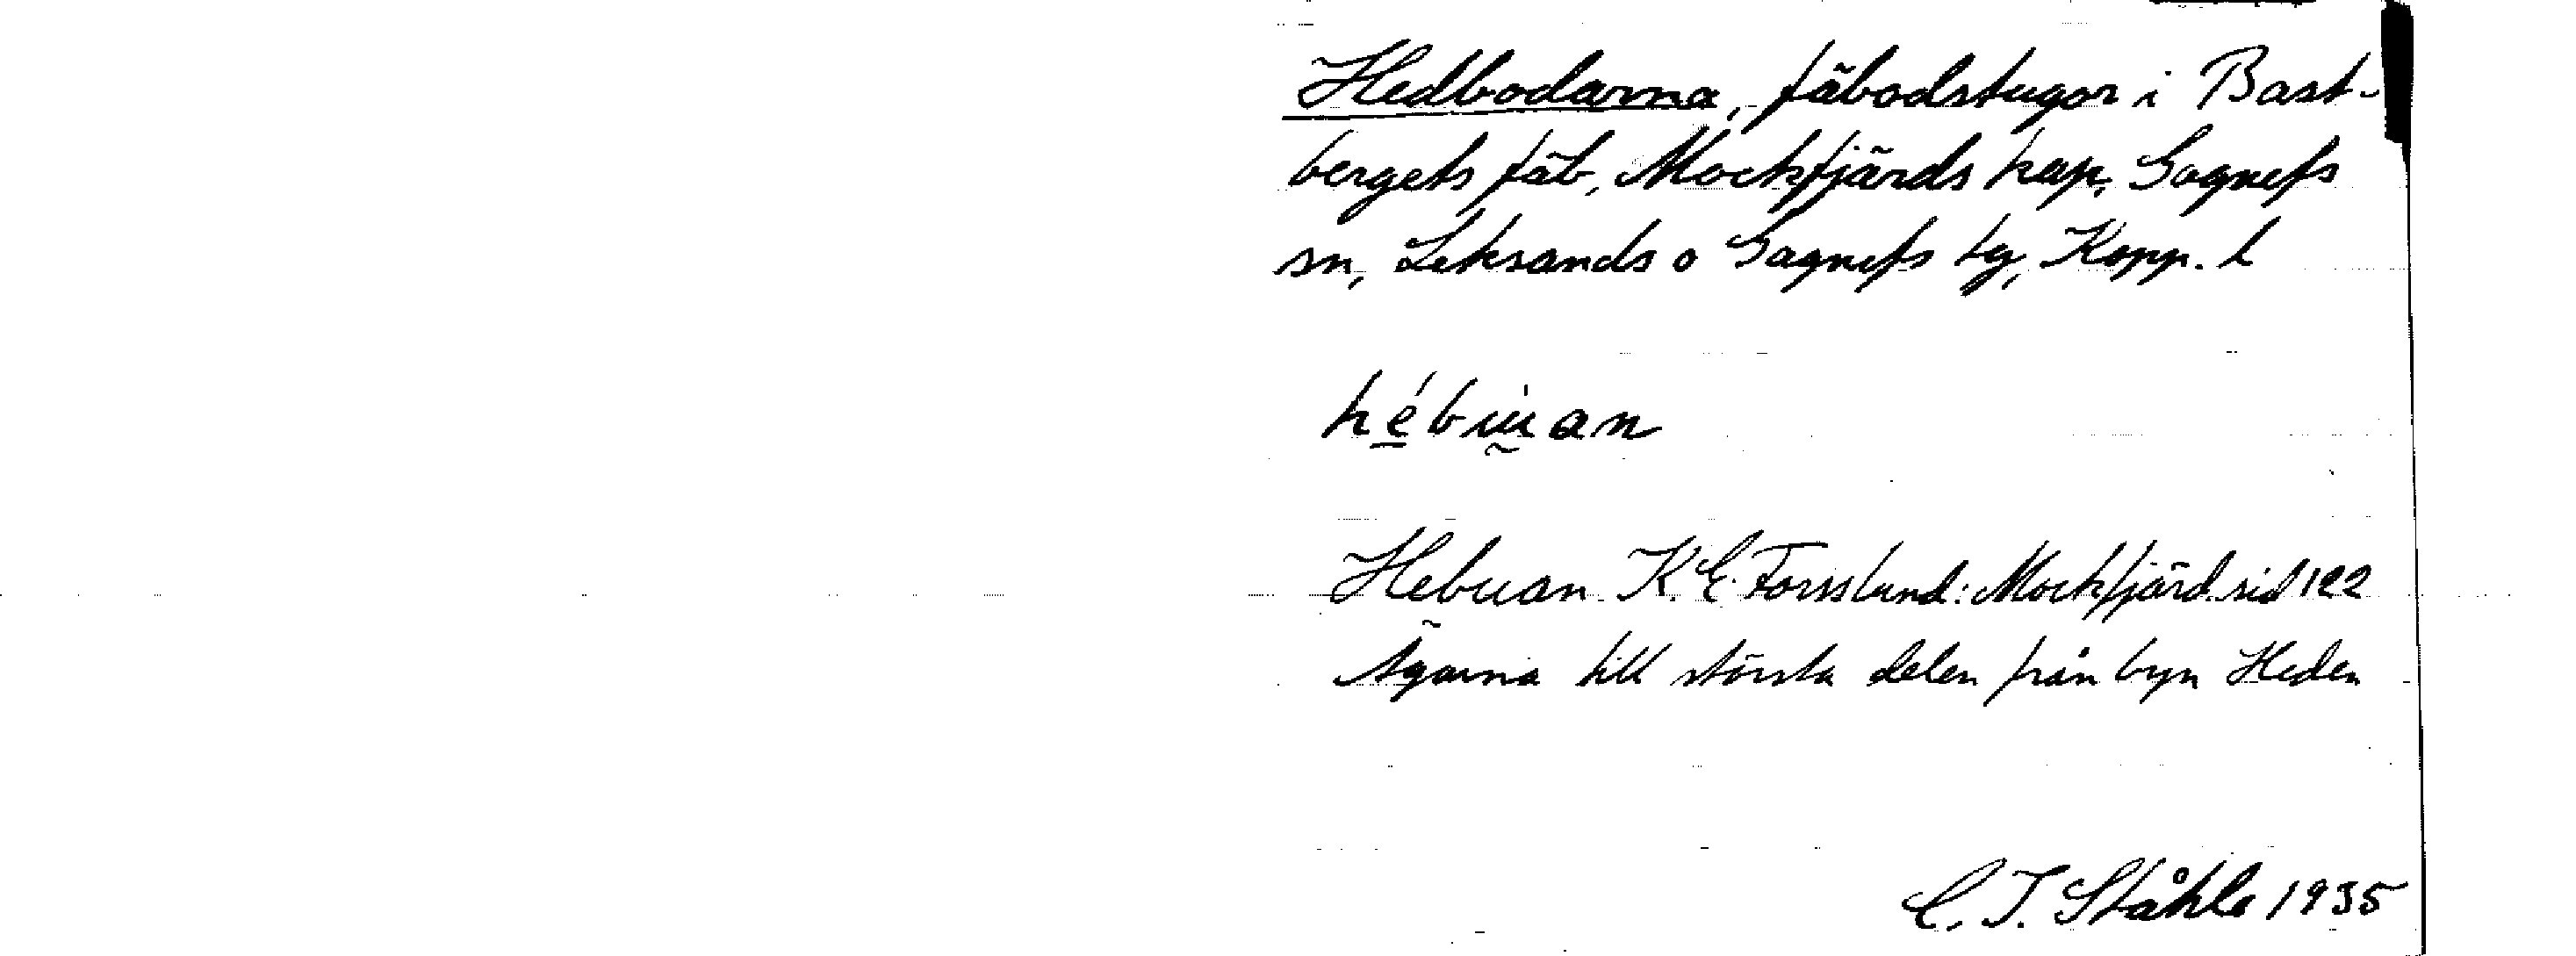 Hedbodarna, fäbodstugor i Bast-
bergets fäb, Mockfjärds kap, Gagnefs
sn, Leksands o Gagnefs tg, Kopp. l
hébu̇an
Hebuan K.E. Forsslund: Mockfjärd sid 122
Ägarna till största delen från byn Heden
C. I. Ståhle 1935